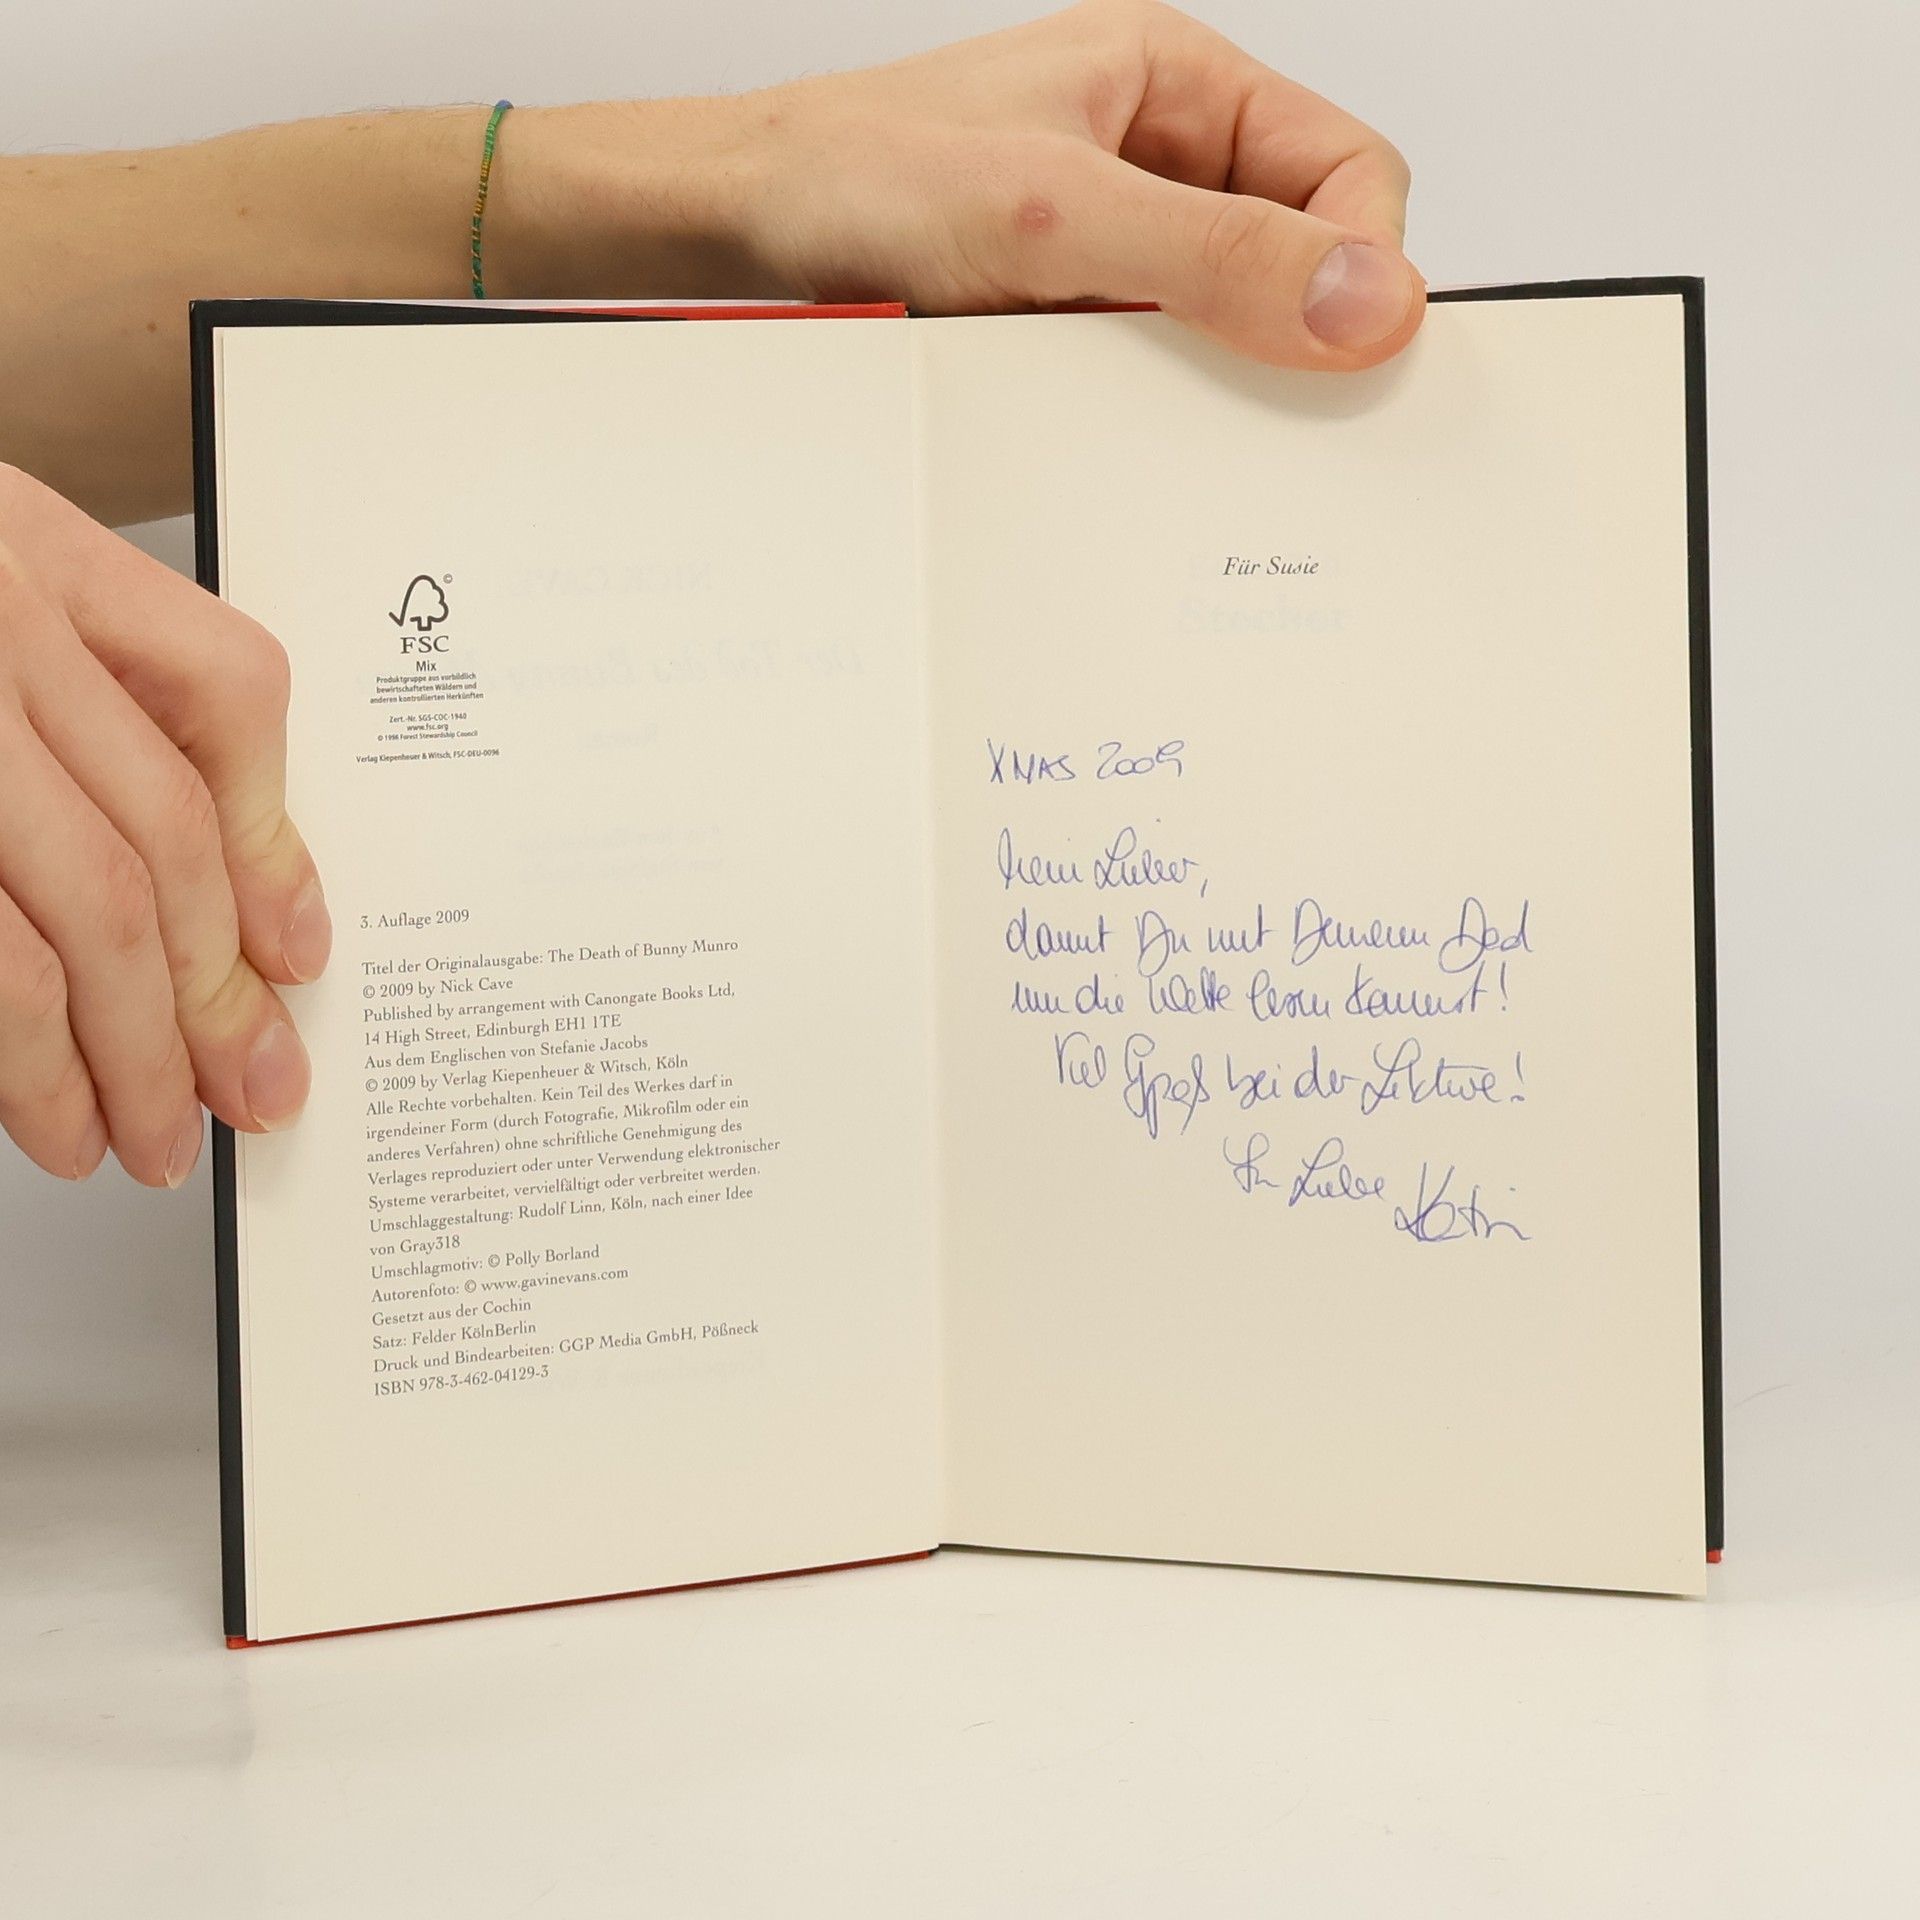 FSC
Mix
Produktgruppe aus vorbildlich
bewirtschafteten Wäldern und
anderen kontrollierten Herkünften
Zert.-Nr. SGS-COC-1940
www.fsc.org
© 1996 Forest Stewardship Council
Verlag Kiepenheuer & Witsch, FSC-DEU-0096
3. Auflage 2009
Titel der Originalausgabe: The Death of Bunny Munro
© 2009 by Nick Cave
Published by arrangement with Canongate Books Ltd,
14 High Street, Edinburgh EH1 1TE
Aus dem Englischen von Stefanie Jacobs
© 2009 by Verlag Kiepenheuer & Witsch, Köln
Alle Rechte vorbehalten. Kein Teil des Werkes darf in
irgendeiner Form (durch Fotografie, Mikrofilm oder ein
anderes Verfahren) ohne schriftliche Genehmigung des
Verlages reproduziert oder unter Verwendung elektronischer
Systeme verarbeitet, vervielfältigt oder verbreitet werden.
Umschlaggestaltung: Rudolf Linn, Köln, nach einer Idee
von Gray318
Umschlagmotiv: © Polly Borland
Autorenfoto: © www.gavinevans.com
Gesetzt aus der Cochin
Satz: Felder KölnBerlin
Druck und Bindearbeiten: GGP Media GmbH, Pößneck
ISBN 978-3-462-04129-3
Für Susie
XMAS 2009
Mein Lieber,
damit Du mit Deinem Dad
um die Wette lesen kannst!
Viel Spaß bei der Lektüre!
In Liebe